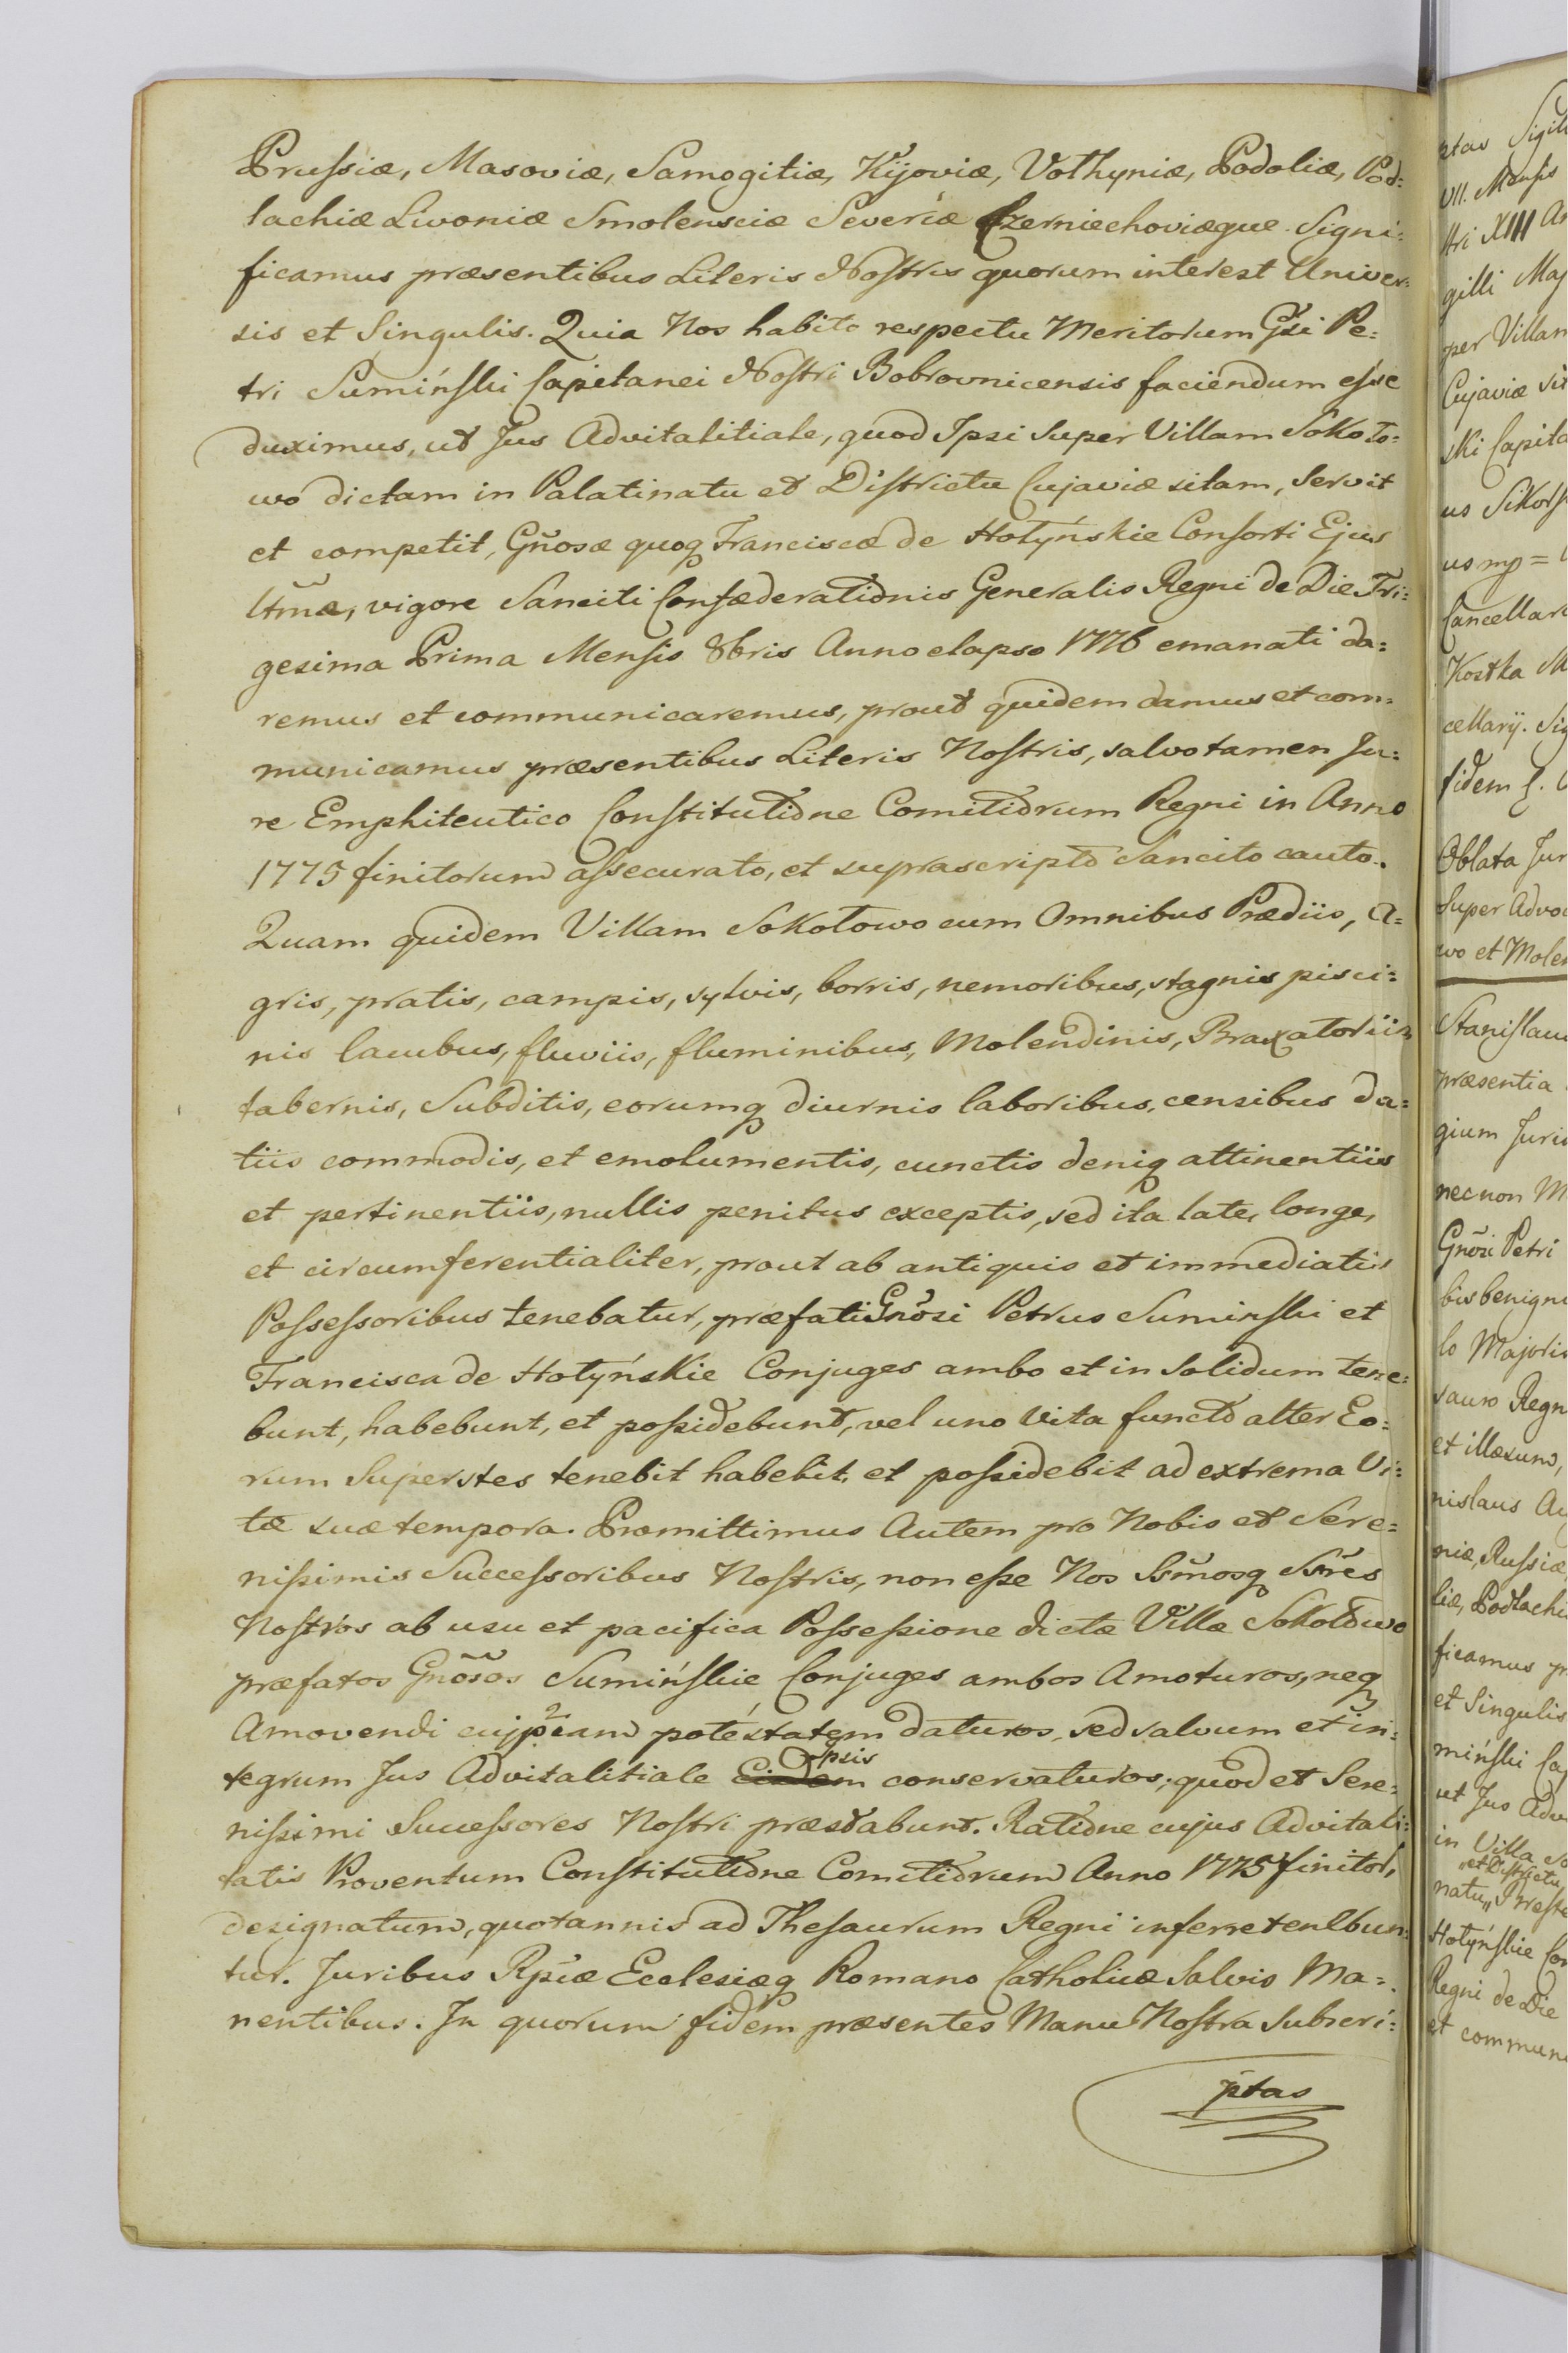 Prussiæ, Masoviæ, Samogitiæ, Kijoviæ, Volhyniæ, Podoliæ, Pod=
lachiæ Livoniæ Smolensciæ Severiæ Czerniechoviæque. Signi=
ficamus præsentibus Literis Nostris quorum interest Univer=
sis et Singulis. Quia Nos habito respectu Meritorum Gsi Pe=
tri Sumiński Capitanei Nostri Bobrovnicensis faciendum esse
duximus, ut Jus Advitalitiale, quod Ipsi Super Villam Sokoło=
wo dictam in Palatinatu et Districtu Cujaviæ sitam, servit
et competit, Gñosæ quoq Franciscæ de Hołyńskie Consorti Ejus
ltmæ, vigore Sanciti Confæderationis Generalis Regni de Die Tri=
gesima Prima Mensis 8bris Anno elapso 1776 emanati da=
remus et communicaremus, prout quidem damus et com=
municamus præsentibus Literis Nostris, salvo tamen Ju=
re Emphiteutico Constitutione Comitiorum Regni in Anno
1775 finitorum assecurato, et suprascripto Sancito cauto.
Quam quidem Villam Sokołowo cum Omnibus Prædiis, A=
gris, pratis, campis, sylvis, borris, nemoribus, stagnis pisci=
nis lacubus, fluviis, fluminibus, Molendinis, Braxatoriis
tabernis, Subditis, eorumq diurnis laboribus, censibus da=
tiis commodis, et emolumentis, cunctis deniq attinentiis
et pertinentiis, nullis penitus exceptis, sed ita late, longe,
et circumferentialiter, prout ab antiquis et immediatis
Possessoribus tenebatur, præfati Gnõsi Petrus Suminski et
Francisca de Hołyńskie Conjuges ambo et in Solidum tene=
bunt, habebunt, et possidebunt, vel uno Vita functo alter Eo=
rum Superstes tenebit habebit, et possidebit ad extrema Vi=
tæ suæ tempora. Promittimus Autem pro Nobis et Sere=
nissimis Successoribus Nostris, non esse Nos Ssmosq Ssres
Nostros ab usu et pacifica Possessione dictæ Villæ Sokołowo
præfatos Gnõsos Sumińskie Conjuges ambos Amoturos, neq
Amovendi cujpiam potestatem daturos, sed salvum et in=
tegrum Jus Advitalitiale Eisdem Ipsis conservaturos; quod et Sere=
nissimi Successores Nostri præstabunt. Ratione cujus Advitali=
tatis Proventum Constitutione Comitiorum Anno 1775 finitor,
designatum, quotannis ad Thesaurum Regni inferre tenebun=
tur. Juribus Rpiæ Ecclesiæq Romano Catholicæ Salvis Ma=
nentibus. In quorum fidem præsentes Manu Nostra Subscri=
ptas
ptas Sigil
VII. Mensis
stri XIII An
gilli Maj
per Villam
Cujaviæ sit
ski Capita
us Sikors
us mp =
Cancellar
Kostka M
cellarij. Sig
fidem
Oblata Jur
Super Advo
wo et Molen
Stanislaus
præsentia
gium Juris
necnon M
Gnõsi Petri
bis benigni
lo Majoris
sauro Regn
et illæsum,
nislaus Au
niæ, Russiæ,
liæ, Podlachi
ficamus pr
et Singulis
miński Cap
ut Jus Adv
in Villa So
„et Districtu
natu„ Brest
Hołyńskie Con
Regni de Die
et commun